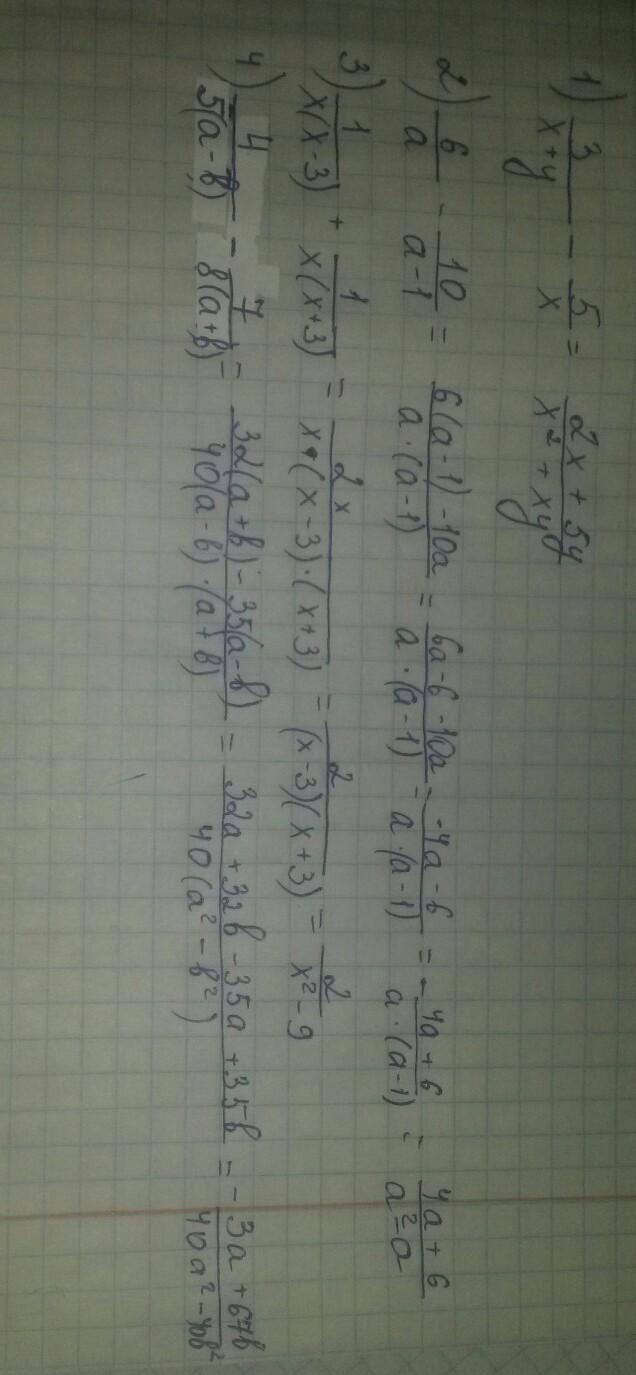 1) 3/(x+y) - 5/x = (2x + 5y)/(x² + xy)
2) 6/a - 10/(a-1) = (6(a-1) - 10a)/(a·(a-1)) = (6a-6-10a)/(a·(a-1)) = (-4a-6)/(a·(a-1)) = -(4a+6)/(a·(a-1)) = (4a+6)/(a²-a)
3) 1/(x(x-3)) + 1/(x(x+3)) = 2x/(x·(x-3)·(x+3)) = 2/((x-3)(x+3)) = 2/(x²-9)
4) 4/(5(a-b)) - 7/(8(a+b)) = (32(a+b) - 35(a-b))/(40(a-b)·(a+b)) = (32a+32b-35a+35b)/(40(a²-b²)) = -(3a+67b)/(40a²-40b²)